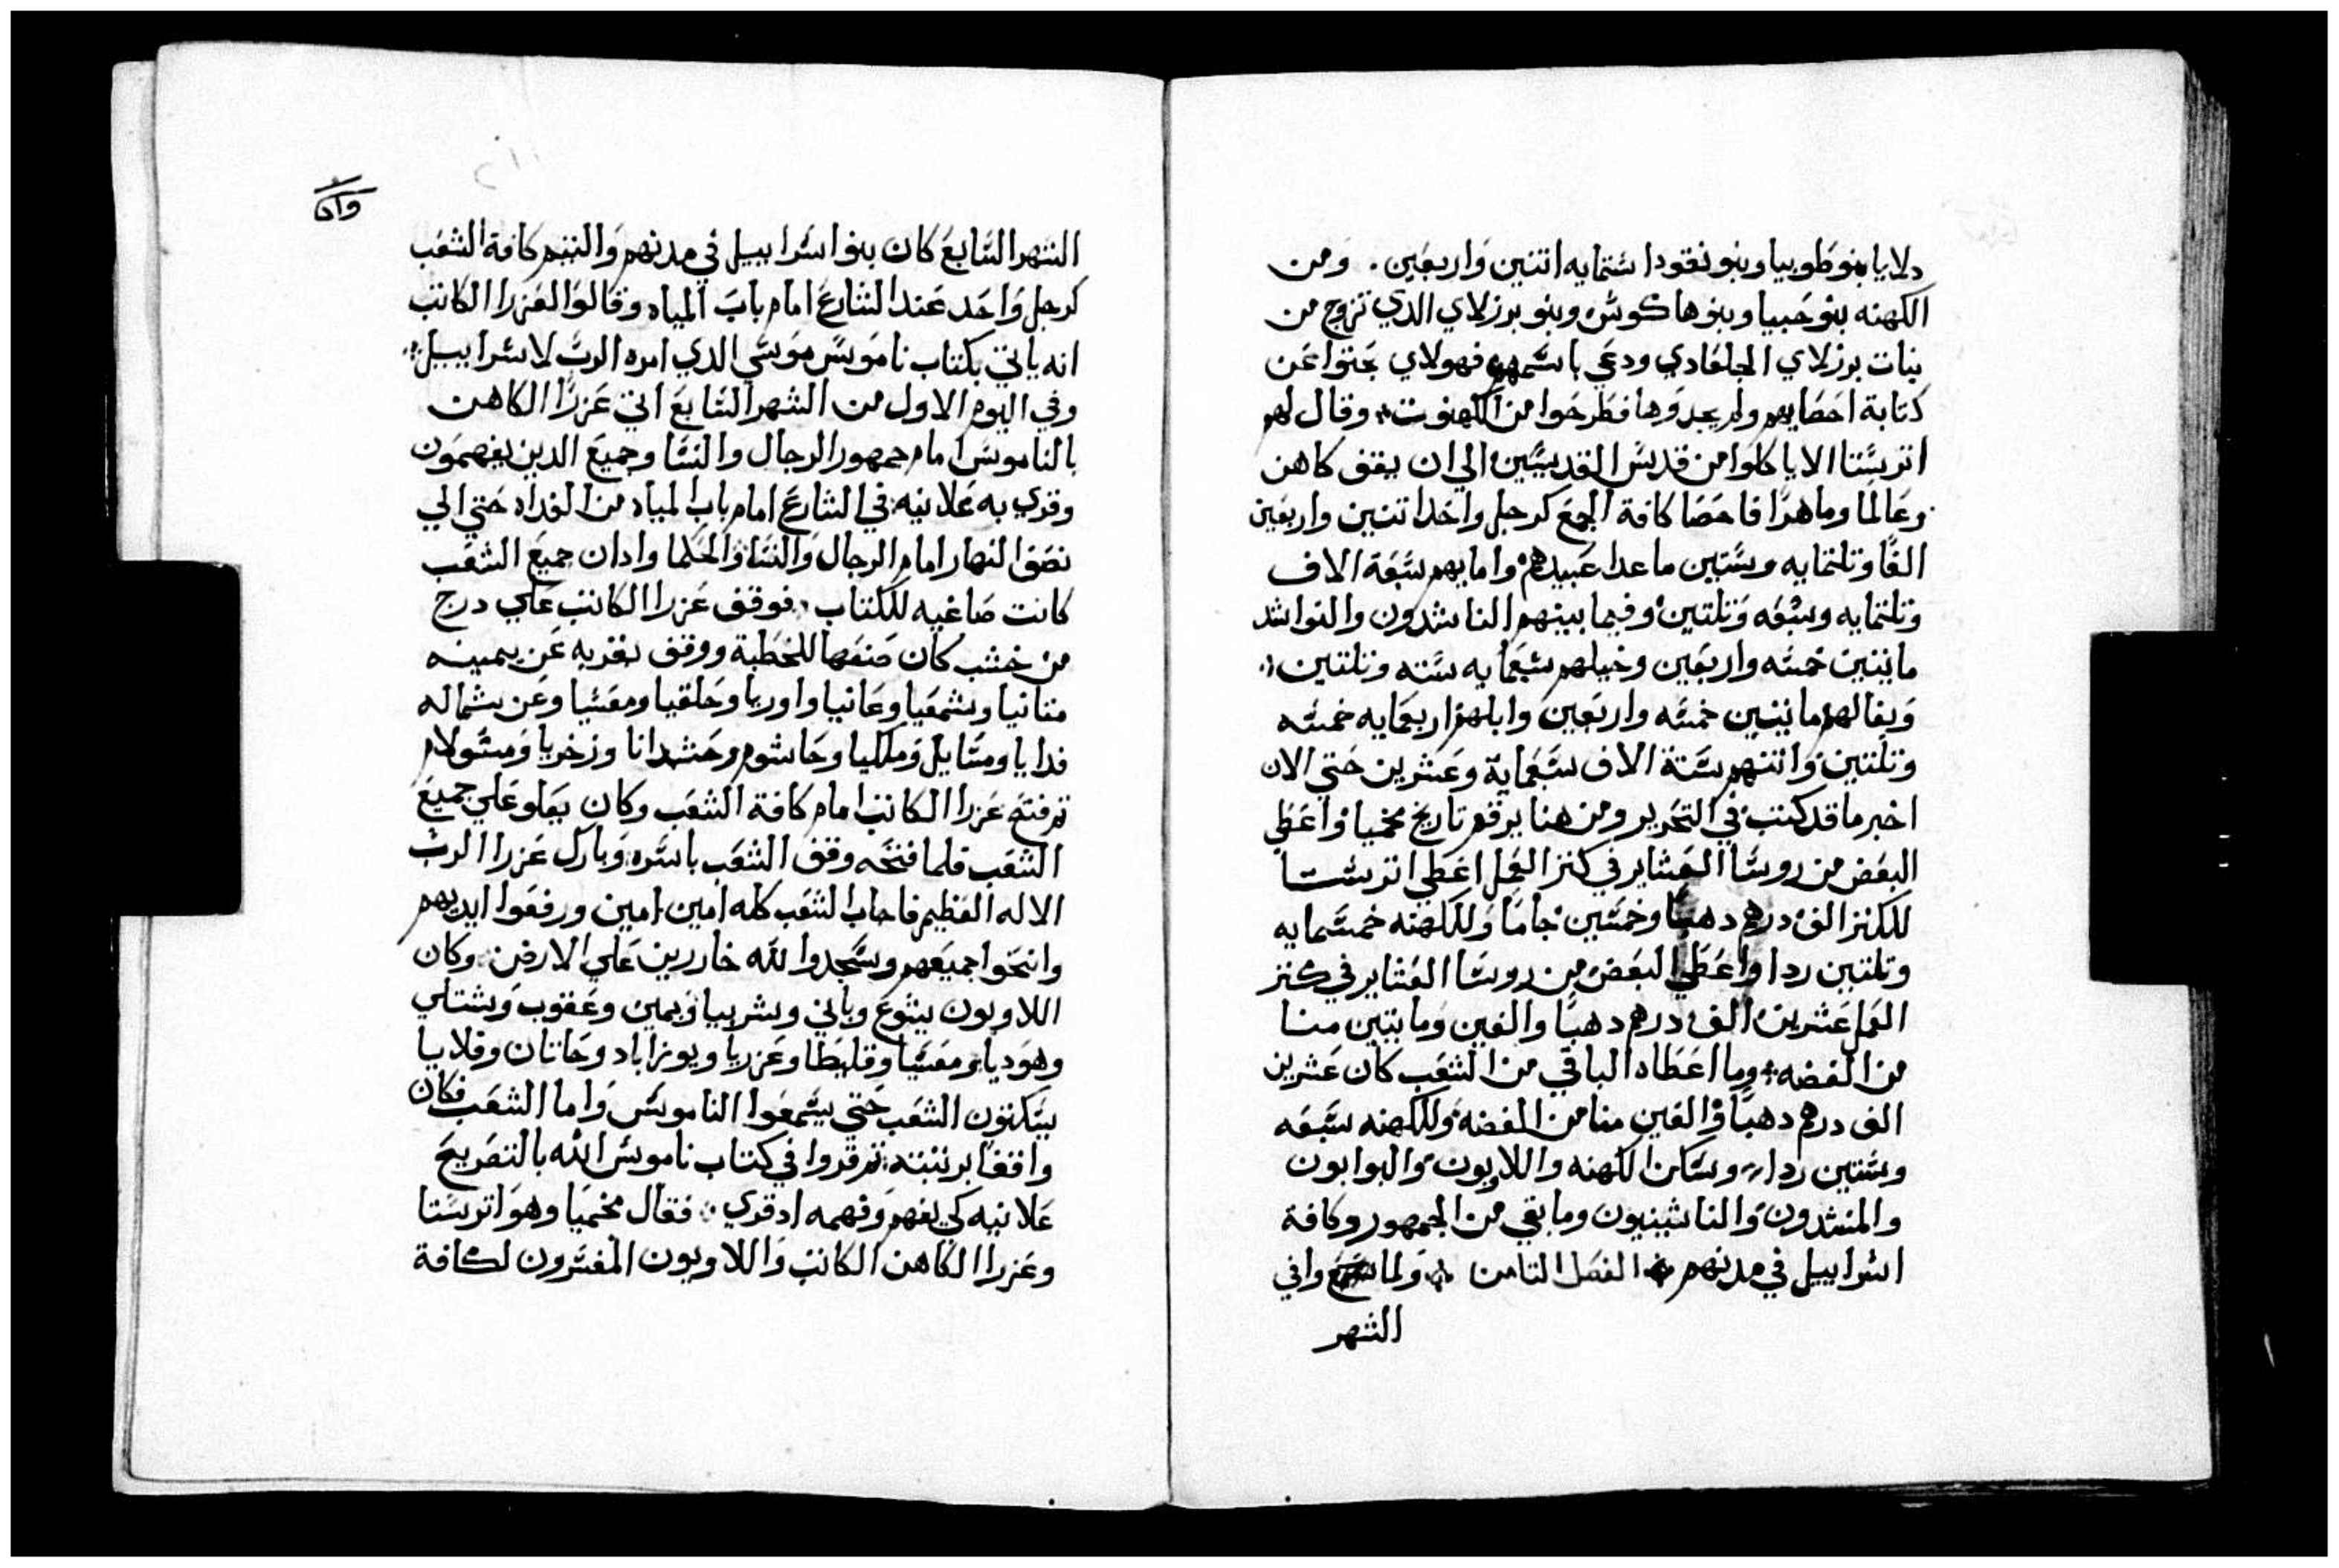 دلايا بنو طوبيا وبنو نقودا ستمايه اتنين واربعين. ومن
الكهنه بنو حبيا وبنو هاكوس وبنو برزلاي الدي تزوج من
بنات برزلاي الجلعادي ودعي باسمهم فهولاي بحتوا عن
كتابة احصايهم ولم يجدوها فطرحوا من الكهنوت وقال لهم
اترستا الا ياكلوا من قدس القديسين الي ان يقف كاهن
وعالما وماهرا فاحصا كافة الجمع كرجل واحدا تنين واربعين
الفا وتلتمايه وستين ماعدا عبيدهم وامايهم سبعة الاف
وتلتمايه وسبعه وتلتين وفيما بينهم الناشدون والنواشد
مايتين خمسه واربعين وخيلهم سبعمايه سته وتلتين
وبغالهم مايتين خمسه واربعين وابلهم اربعمايه خمسه
وتلتين واتنهم ستة الاف سبعماية وعشرين حتي الان
اخبر ما قد كتب في التحرير ومن هنا يرقم تاريخ نحميا واعطي
البعض من روسا العشاير في كنز العمل اعطي اترستا
للكنز الف درهم دهبا وخمسين جاما وللكهنه خمسمايه
وتلتين ردا واعطي البعض من روسا العشاير في كنز
العمل عشرين الف درهم دهبا والفين ومايتين منا
من الفضه وما اعطاه الباقي من الشعب كان عشرين
الف درهم دهبا والفين منا من الفضه وللكهنه سبعه
وستين ردا وسكن الكهنه واللاويون والبوابون
والمنشدون والناثينيون وما بقي من الجمهور وكافة
اسراييل في مدنهم الفصل التامن ولما وافي
الشهر
وادا
الشهر السابع كان بنوا اسراييل في مدنهم والتئم كافة الشعب
كرجل واحد عند الشارع امام باب المياه وقالوا لعزرا الكاتب
انه ياتي بكتاب ناموس موسي الدي امره الرب لاسراييل
وفي اليوم الاول من الشهر السابع اتي عزرا الكاهن
بالناموس امام جمهور الرجال والنسا وجميع الدين يفهمون
وقري به علانيه في الشارع امام باب المياه من الغداه حتي الي
نصف النهار امام الرجال والنسا والحكما وادان جميع الشعب
كانت صاغيه للكتاب فوقف عزرا الكاتب علي درج
من خشب كان صنعها للخطبة ووقف بقربه عن يمينه
متاتيا وشمعيا وعانيا واوريا وحلقيا ومعسيا وعن شماله
فدايا وميسايل وملكيا وحاشوم وحشبدانا وزخريا ومسولام
تم فتح عزرا الكاتب امام كافة الشعب وكان يعلو علي جميع
الشعب فلما فتحه وقف الشعب باسره وبارك عزرا الرب
الاله العظيم فاجاب الشعب كله امين امين ورفعوا ايديهم
وانحنوا جميعهم وسجدوا لله خاررين علي الارض وكان
اللاويون يشوع وباني وشربيا ويمين وعقوب وشبتاي
وهوديا ومعسيا وقليطا وعزريا ويوزاباد وحانان وفلايا
يسكتون الشعب حتي يسمعوا الناموس واما الشعب فكان
واقفا برتبته تم قروا في كتاب ناموس الله بالتصريح
علانيه كي يفهم وفهمه ادقري فقال نحميا وهو اترستا
وعزرا الكاهن الكاتب واللاويون المفسرون لكافة